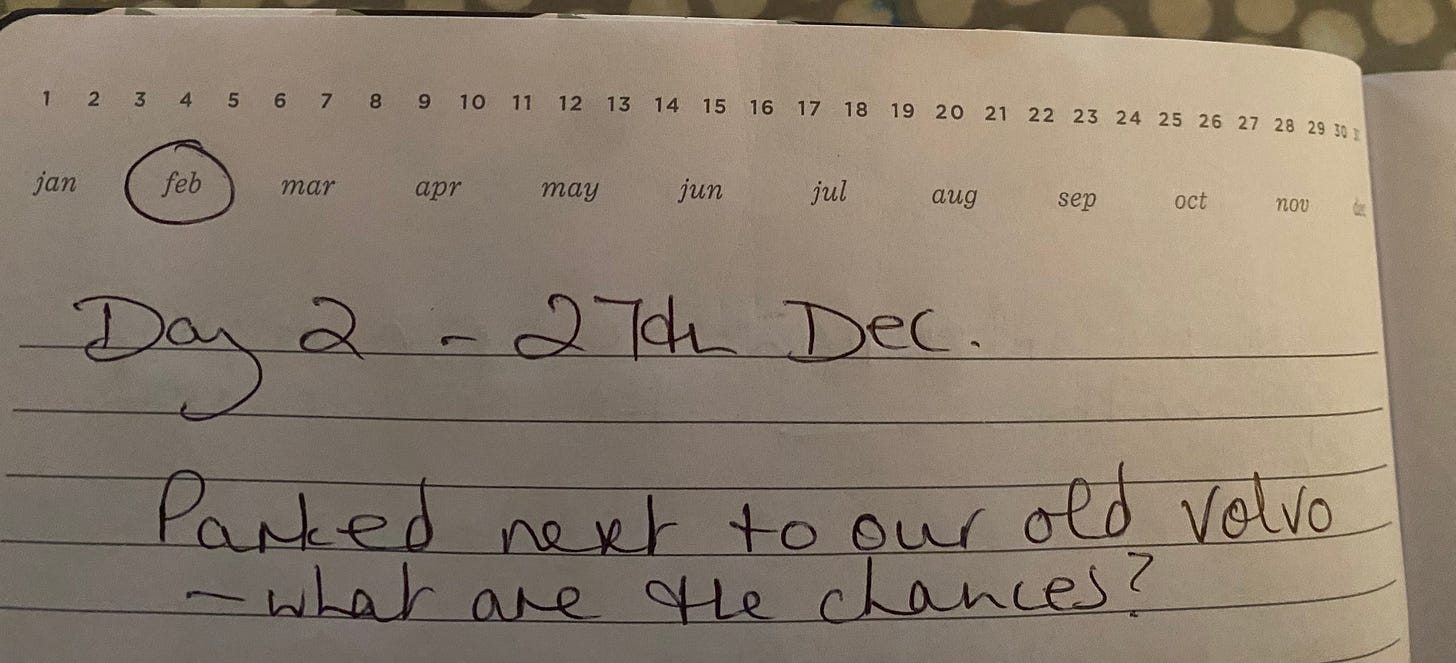 1 2 3 4 5 6 7 8 9 10 11 12 13 14 15 16 17 18 19 20 21 22 23 24 25 26 27 28 29 30
jan feb mar apr may jun jul aug sep oct nov dec
Day 2 - 27th Dec.
Parked next to our old volvo
- what are the chances?